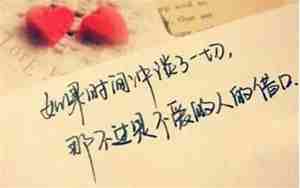 如果时间冲淡了一切,
那不过是不爱的人的借口.